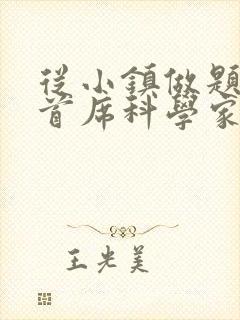 從小鎮做題
首席科學家
王光美